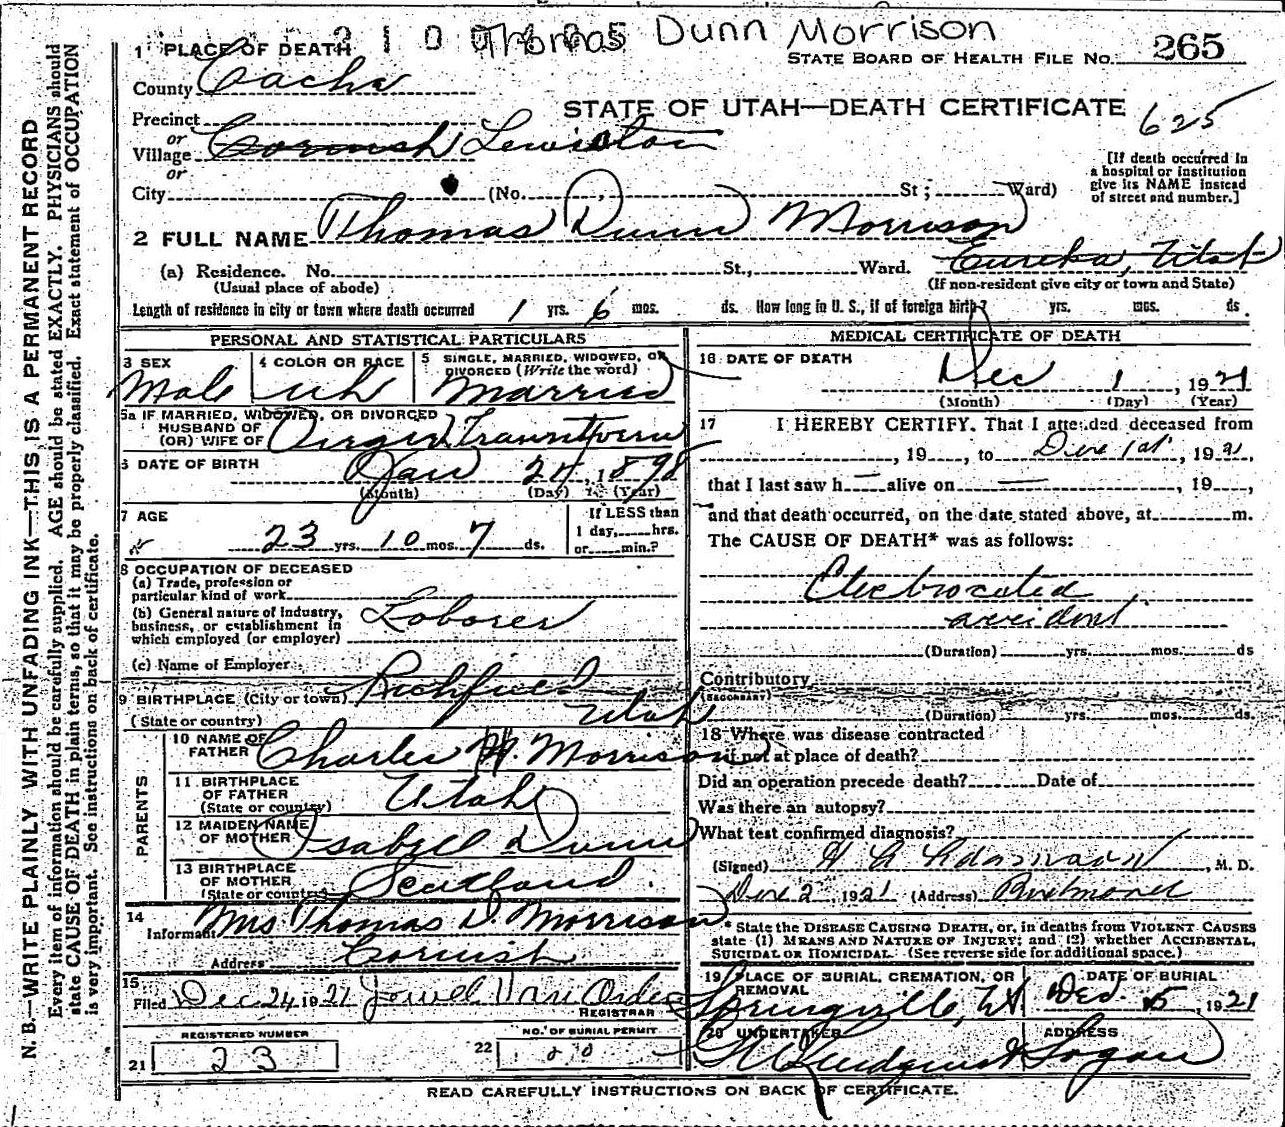 Thomas Dunn Morrison
1 PLACE OF DEATH
STATE BOARD OF HEALTH FILE NO. 265
County Cache
STATE OF UTAH—DEATH CERTIFICATE
625
Precinct
or
Village Cornish Lewiston
or
[If death occurred in
a hospital or institution
give its NAME instead
of street and number.]
City (No. , St ; Ward)
2 FULL NAME Thomas Dunn Morrison
(a) Residence. No. St., Ward. Eureka, Utah
(Usual place of abode) (If non-resident give city or town and State)
Length of residence in city or town where death occurred 1 yrs. 6 mos. ds. How long in U. S., if of foreign birth? yrs. mos. ds.
PERSONAL AND STATISTICAL PARTICULARS
3 SEX
Male
4 COLOR OR RACE
wh
5 SINGLE, MARRIED, WIDOWED, OR
DIVORCED (Write the word)
Married
5a IF MARRIED, WIDOWED, OR DIVORCED
HUSBAND OF
(OR) WIFE OF
6 DATE OF BIRTH Jan 24, 1898
(Month) (Day) (Year)
7 AGE
23 yrs. 10 mos. 7 ds.
If LESS than
1 day, hrs.
or min.?
8 OCCUPATION OF DECEASED
(a) Trade, profession or
particular kind of work
(b) General nature of Industry,
business, or establishment in
which employed (or employer)
Laborer
(c) Name of Employer
9 BIRTHPLACE (City or town) Richfield
(State or country) Utah
PARENTS
10 NAME OF
FATHER Charles H. Morrison
11 BIRTHPLACE
OF FATHER
(State or country) Utah
12 MAIDEN NAME
OF MOTHER Isabell Dunn
13 BIRTHPLACE
OF MOTHER
(State or country) Scotland.
14
Informant Mrs Thomas D. Morrison
Address Cornish
15
Filed Dec 24 1921
REGISTRAR
REGISTERED NUMBER
21 23
NO. OF BURIAL PERMIT
22 20
MEDICAL CERTIFICATE OF DEATH
16 DATE OF DEATH
Dec 1, 1921
(Month) (Day) (Year)
17 I HEREBY CERTIFY. That I attended deceased from
, 19 , to Dec 1st, 1921,
that I last saw h — alive on — , 19 ,
and that death occurred, on the date stated above, at m.
The CAUSE OF DEATH* was as follows:
Electrocuted
accident
(Duration) yrs. mos. ds
Contributory
(SECONDARY)
(Duration) yrs. mos. ds.
18 Where was disease contracted
if not at place of death?
Did an operation precede death? Date of
Was there an autopsy?
What test confirmed diagnosis?
(Signed) , M. D.
Dec 2, 1921 (Address) Richmond
* State the DISEASE CAUSING DEATH, or, in deaths from VIOLENT CAUSES
state (1) MEANS AND NATURE OF INJURY; and (2) whether ACCIDENTAL,
SUICIDAL OR HOMICIDAL. (See reverse side for additional space.)
19 PLACE OF BURIAL, CREMATION, OR
REMOVAL
Springville, Ut
DATE OF BURIAL
Dec. 5, 1921
20 UNDERTAKER
ADDRESS
Logan
READ CAREFULLY INSTRUCTIONS ON BACK OF CERTIFICATE.
N. B.—WRITE PLAINLY WITH UNFADING INK—THIS IS A PERMANENT RECORD
Every item of information should be carefully supplied. AGE should be stated EXACTLY. PHYSICIANS should
state CAUSE OF DEATH in plain terms, so that it may be properly classified. Exact statement of OCCUPATION
is very important. See instructions on back of certificate.